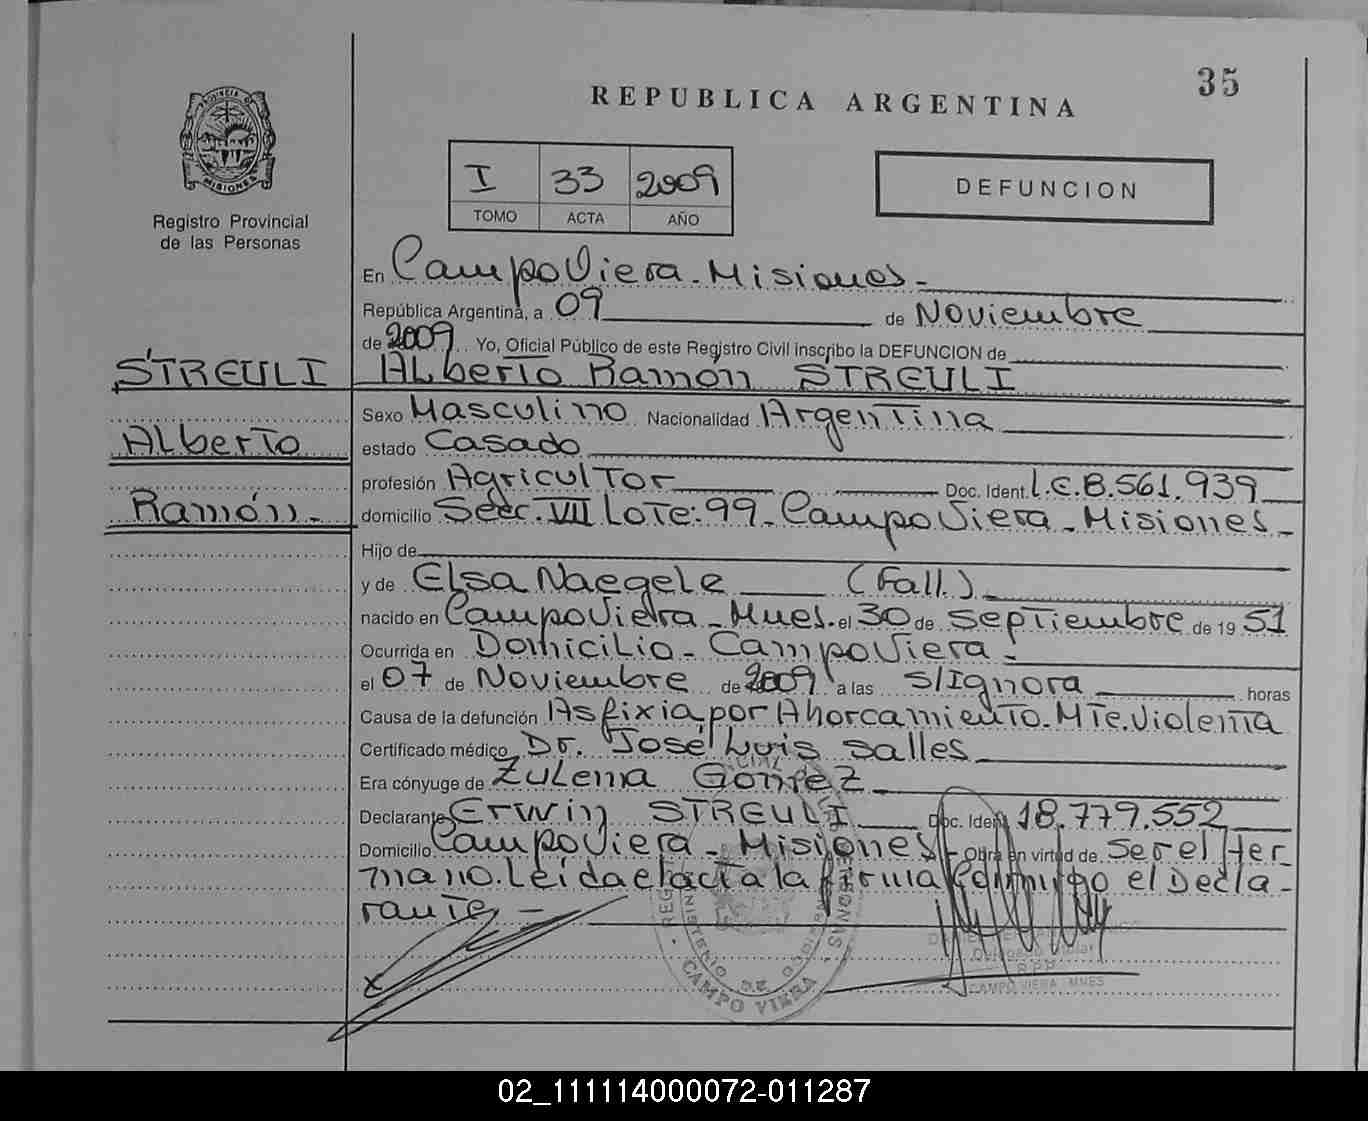 35
REPUBLICA ARGENTINA
PROVINCIA DE
MISIONES
Registro Provincial
de las Personas
I 33 2009
TOMO ACTA AÑO
DEFUNCION
En Campo Viera - Misiones -
República Argentina, a 09 de Noviembre
de 2009 Yo, Oficial Público de este Registro Civil inscribo la DEFUNCION de
STREULI
Alberto
Ramón.-
Alberto Ramón STREULI
Sexo Masculino Nacionalidad Argentina
estado Casado
profesión Agricultor Doc. Ident. L.E.8.561.939
domicilio Secc. VII Lote: 99 - Campo Viera - Misiones -
Hijo de
y de Elsa Naegele (Fall.)
nacido en Campo Viera - Mnes. el 30 de Septiembre de 19 51
Ocurrida en Domicilio - Campo Viera -
el 07 de Noviembre de 2009 a las S/Ignora horas
Causa de la defunción Asfixia por Ahorcamiento. Mte. Violenta
Certificado médico Dr. José Luis Salles
Era cónyuge de Zulema Gomez
Declarante Erwin STREULI Doc. Ident. 18.779.552
Domicilio Campo Viera - Misiones - Obra en virtud de ser el Her
mano. Leída el acta la firma conmigo el Decla-
rante, -
CAMPO VIERA
Delegado Titular
R.P.P.
CAMPO VIERA MNES
02_111114000072-011287